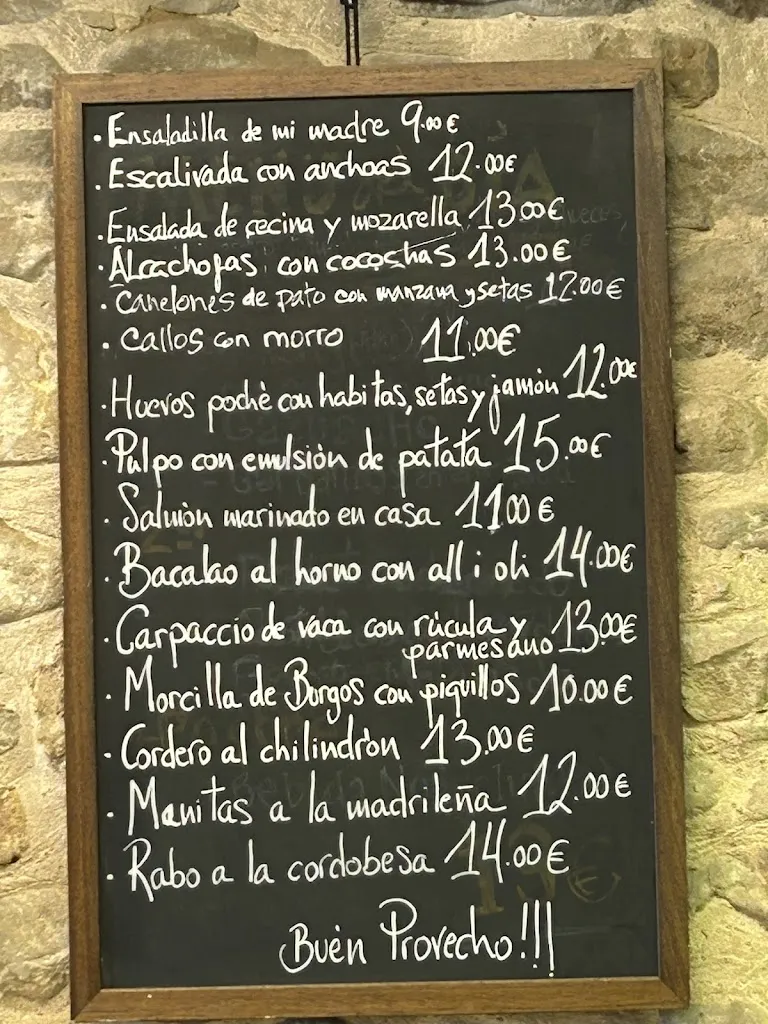 · Ensaladilla de mi madre 9.00€
· Escalivada con anchoas 12.00€
· Ensalada de cecina y mozarella 13.00€
· Alcachofas con cocochas 13.00€
· Canelones de pato con manzana y setas 12.00€
· Callos con morro 11.00€
· Huevos poché con habitas, setas y jamón 12.00€
· Pulpo con emulsión de patata 15.00€
· Salmón marinado en casa 11.00€
· Bacalao al horno con all i oli 14.00€
· Carpaccio de vaca con rúcula y 13.00€
parmesano
· Morcilla de Burgos con piquillos 10.00€
· Cordero al chilindrón 13.00€
· Manitas a la madrileña 12.00€
· Rabo a la cordobesa 14.00€
Buen Provecho!!!